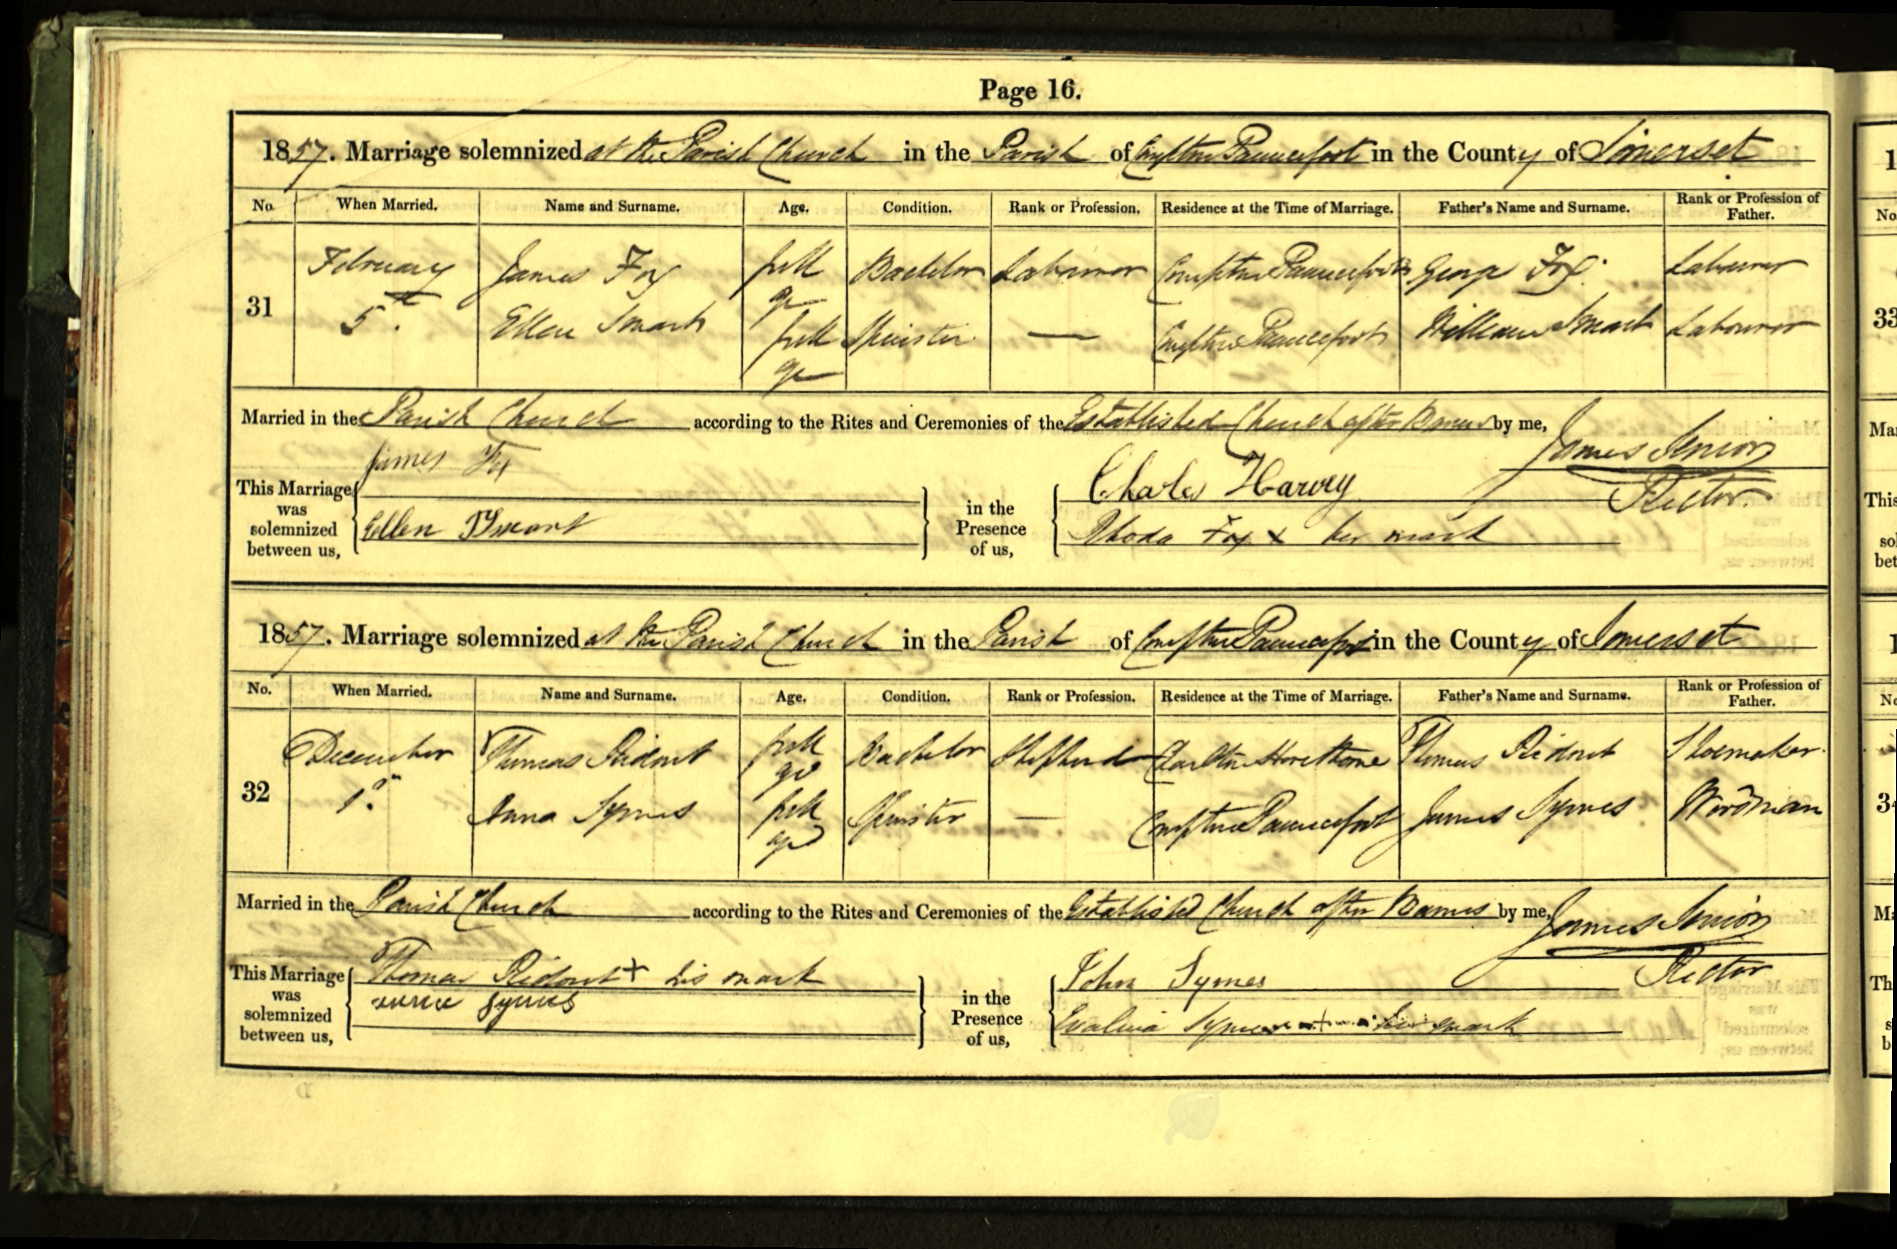 Page 16.
1857. Marriage solemnized at the Parish Church in the Parish of Compton Pauncefoot in the County of Somerset
No. When Married. Name and Surname. Age. Condition. Rank or Profession. Residence at the Time of Marriage. Father's Name and Surname. Rank or Profession of Father.
31 February 5th James Fox full age Bachelor Labourer Compton Pauncefoot George Fox Labourer
Ellen Smart full age Spinster — Compton Pauncefoot William Smart Labourer
Married in the Parish Church according to the Rites and Ceremonies of the Established Church after Banns by me,
James Senior
Rector.
This Marriage was solemnized between us, James Fox
Ellen Smart
in the Presence of us, Charles Harvey
Rhoda Fox x her mark
1857. Marriage solemnized at the Parish Church in the Parish of Compton Pauncefoot in the County of Somerset
No. When Married. Name and Surname. Age. Condition. Rank or Profession. Residence at the Time of Marriage. Father's Name and Surname. Rank or Profession of Father.
32 December 1st Thomas Ridout full age Bachelor Shepherd Charlton Horethorne Thomas Ridout Shoemaker
Anna Symes full age Spinster — Compton Pauncefoot James Symes Woodman
Married in the Parish Church according to the Rites and Ceremonies of the Established Church after Banns by me,
James Senior
Rector
This Marriage was solemnized between us, Thomas Ridout + his mark
Symes
in the Presence of us, John Symes
Evalina Symes + her mark
No
33
34